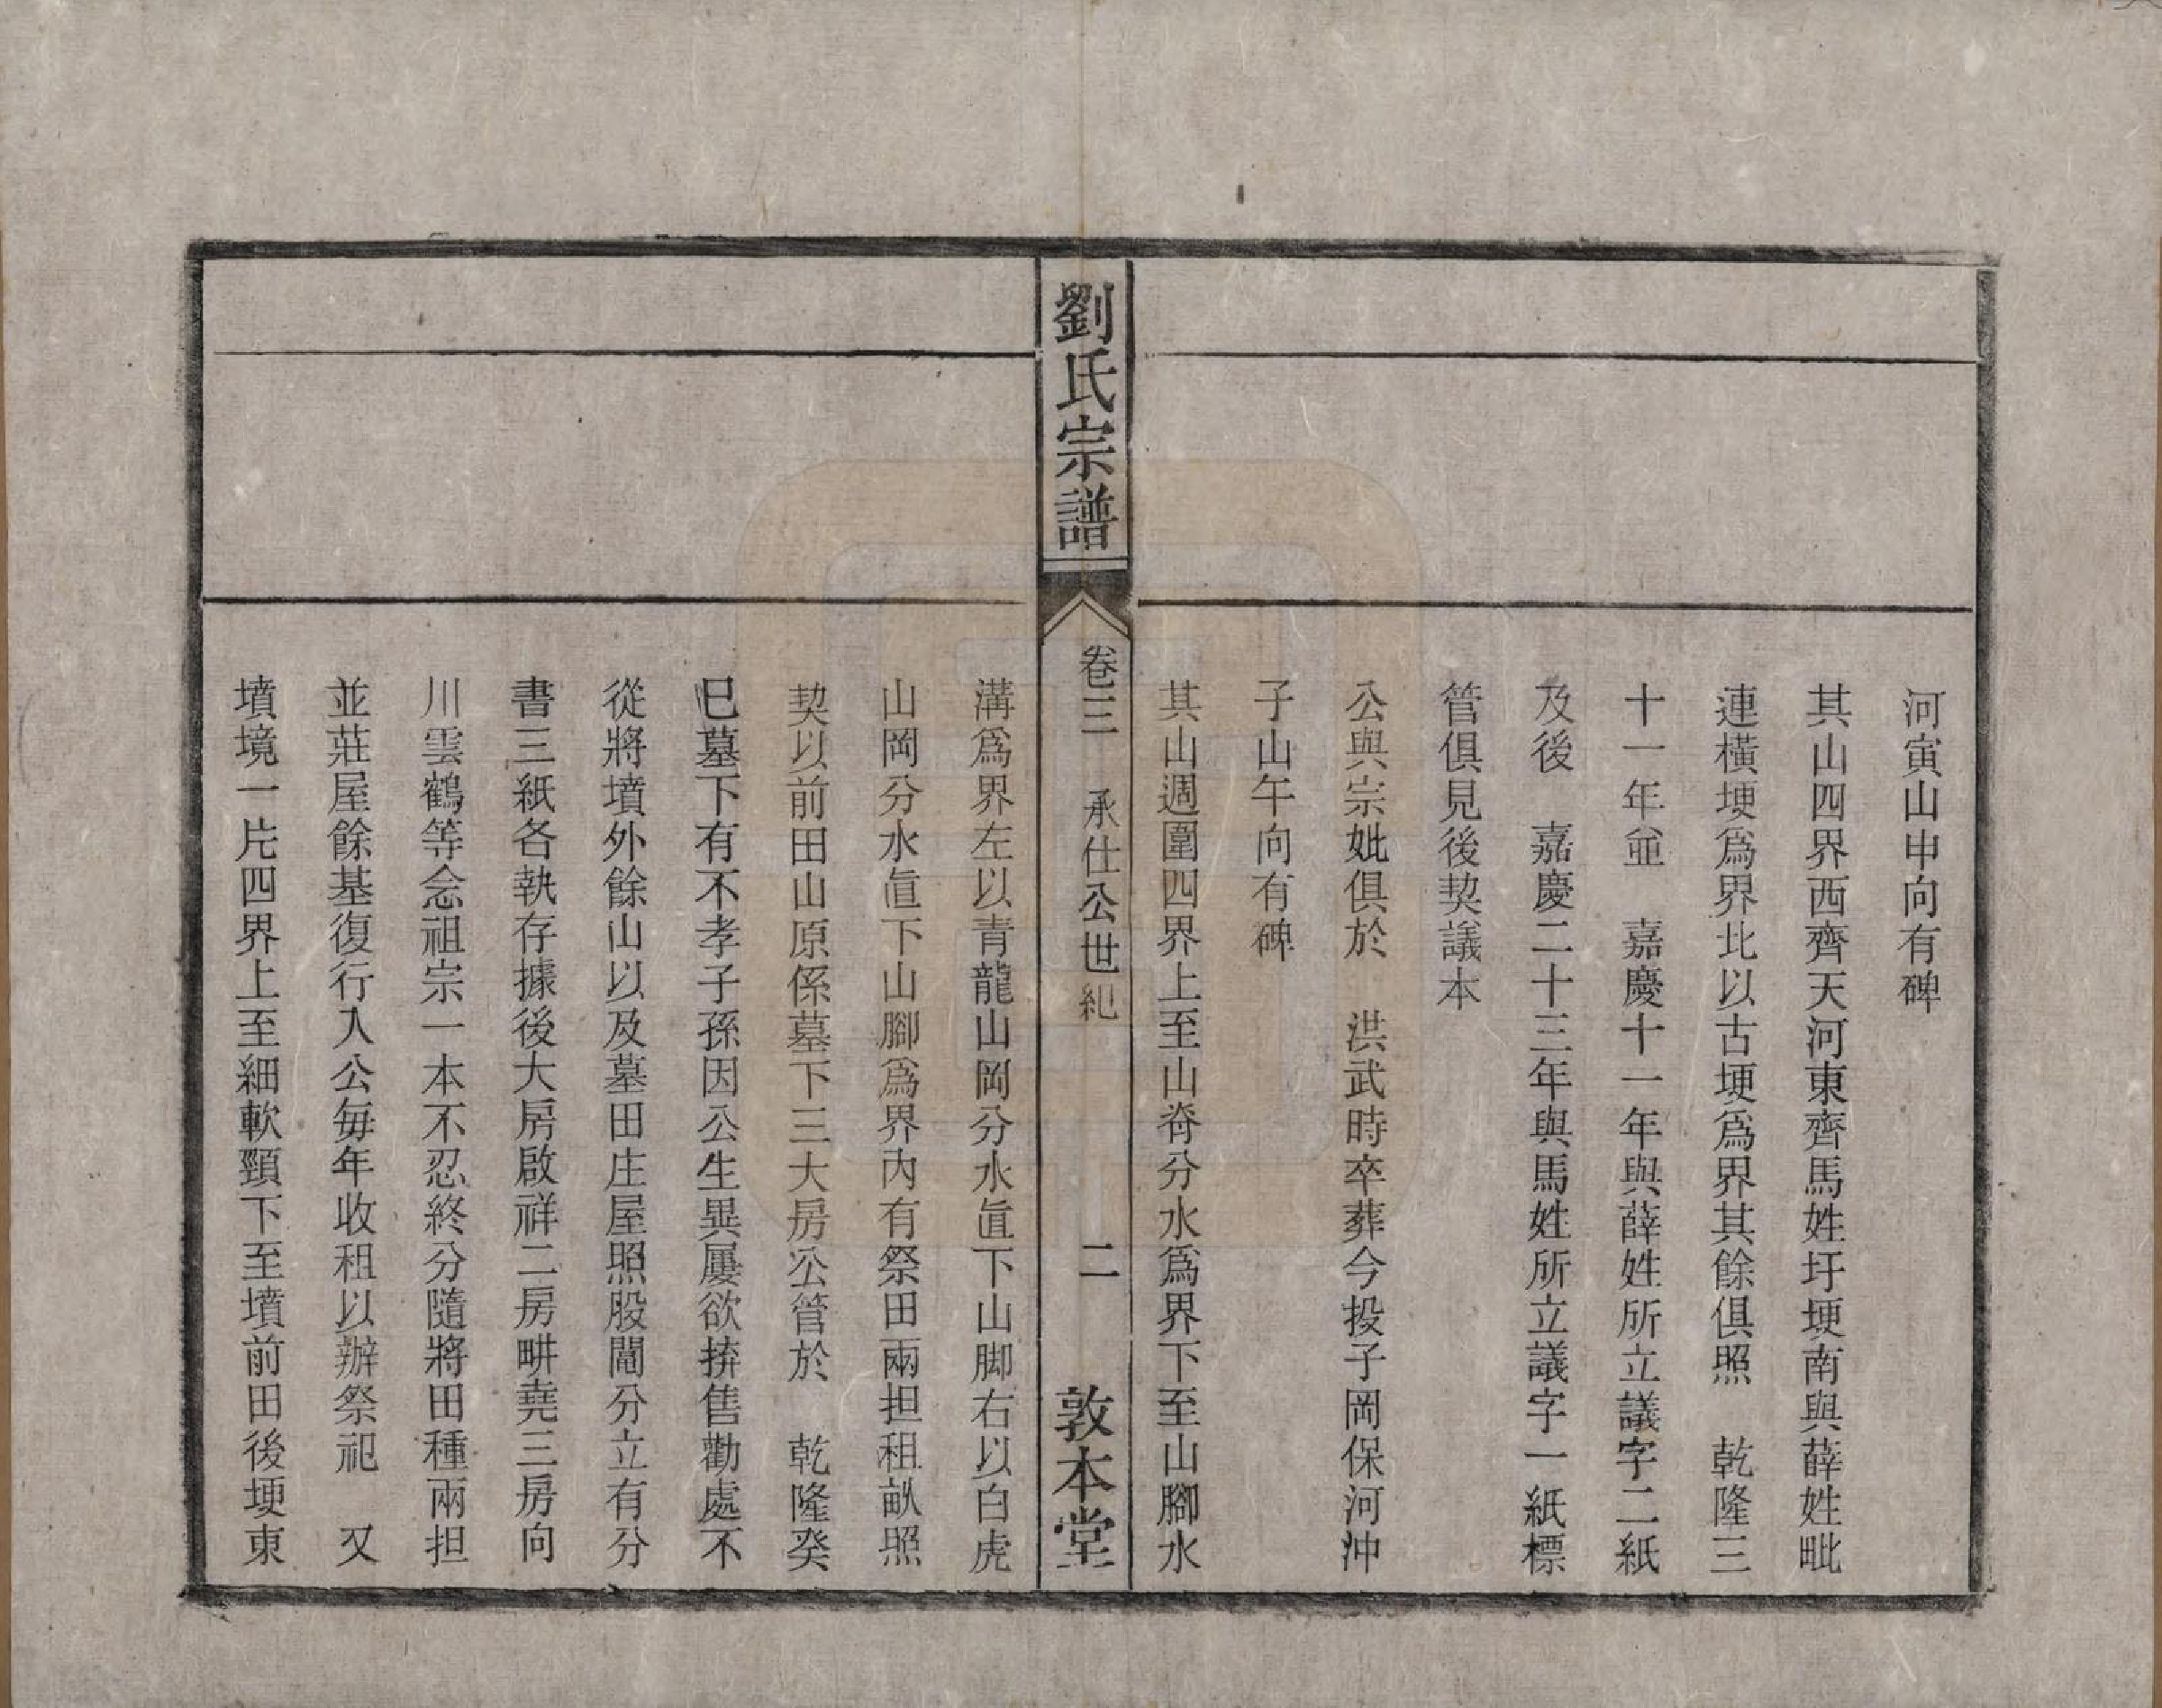 河寅山申向有碑
其山四界西齊天河東齊馬姓圩埂南與薛姓毗
連橫埂爲界北以古埂爲界其餘俱照　乾隆三
十一年並　嘉慶十一年與薛姓所立議字二紙
及後　嘉慶二十三年與馬姓所立議字一紙標
管俱見後契議本
公與宗妣俱於　洪武時卒葬今投子岡保河沖
子山午向有碑
其山週圍四界上至山脊分水爲界下至山腳水
劉氏宗譜
卷三　承仕公世紀
二
敦本堂
溝爲界左以青龍山岡分水直下山脚右以白虎
山岡分水直下山腳爲界內有祭田兩担租畝照
契以前田山原係墓下三大房公管於　乾隆癸
巳墓下有不孝子孫因公生異屢欲拚售勸處不
從將墳外餘山以及墓田庄屋照股鬮分立有分
書三紙各執存據後大房啟祥二房畊堯三房向
川雲鶴等念祖宗一本不忍終分隨將田種兩担
並莊屋餘基復行入公每年收租以辦祭祀　又
墳境一片四界上至細軟頸下至墳前田後埂東